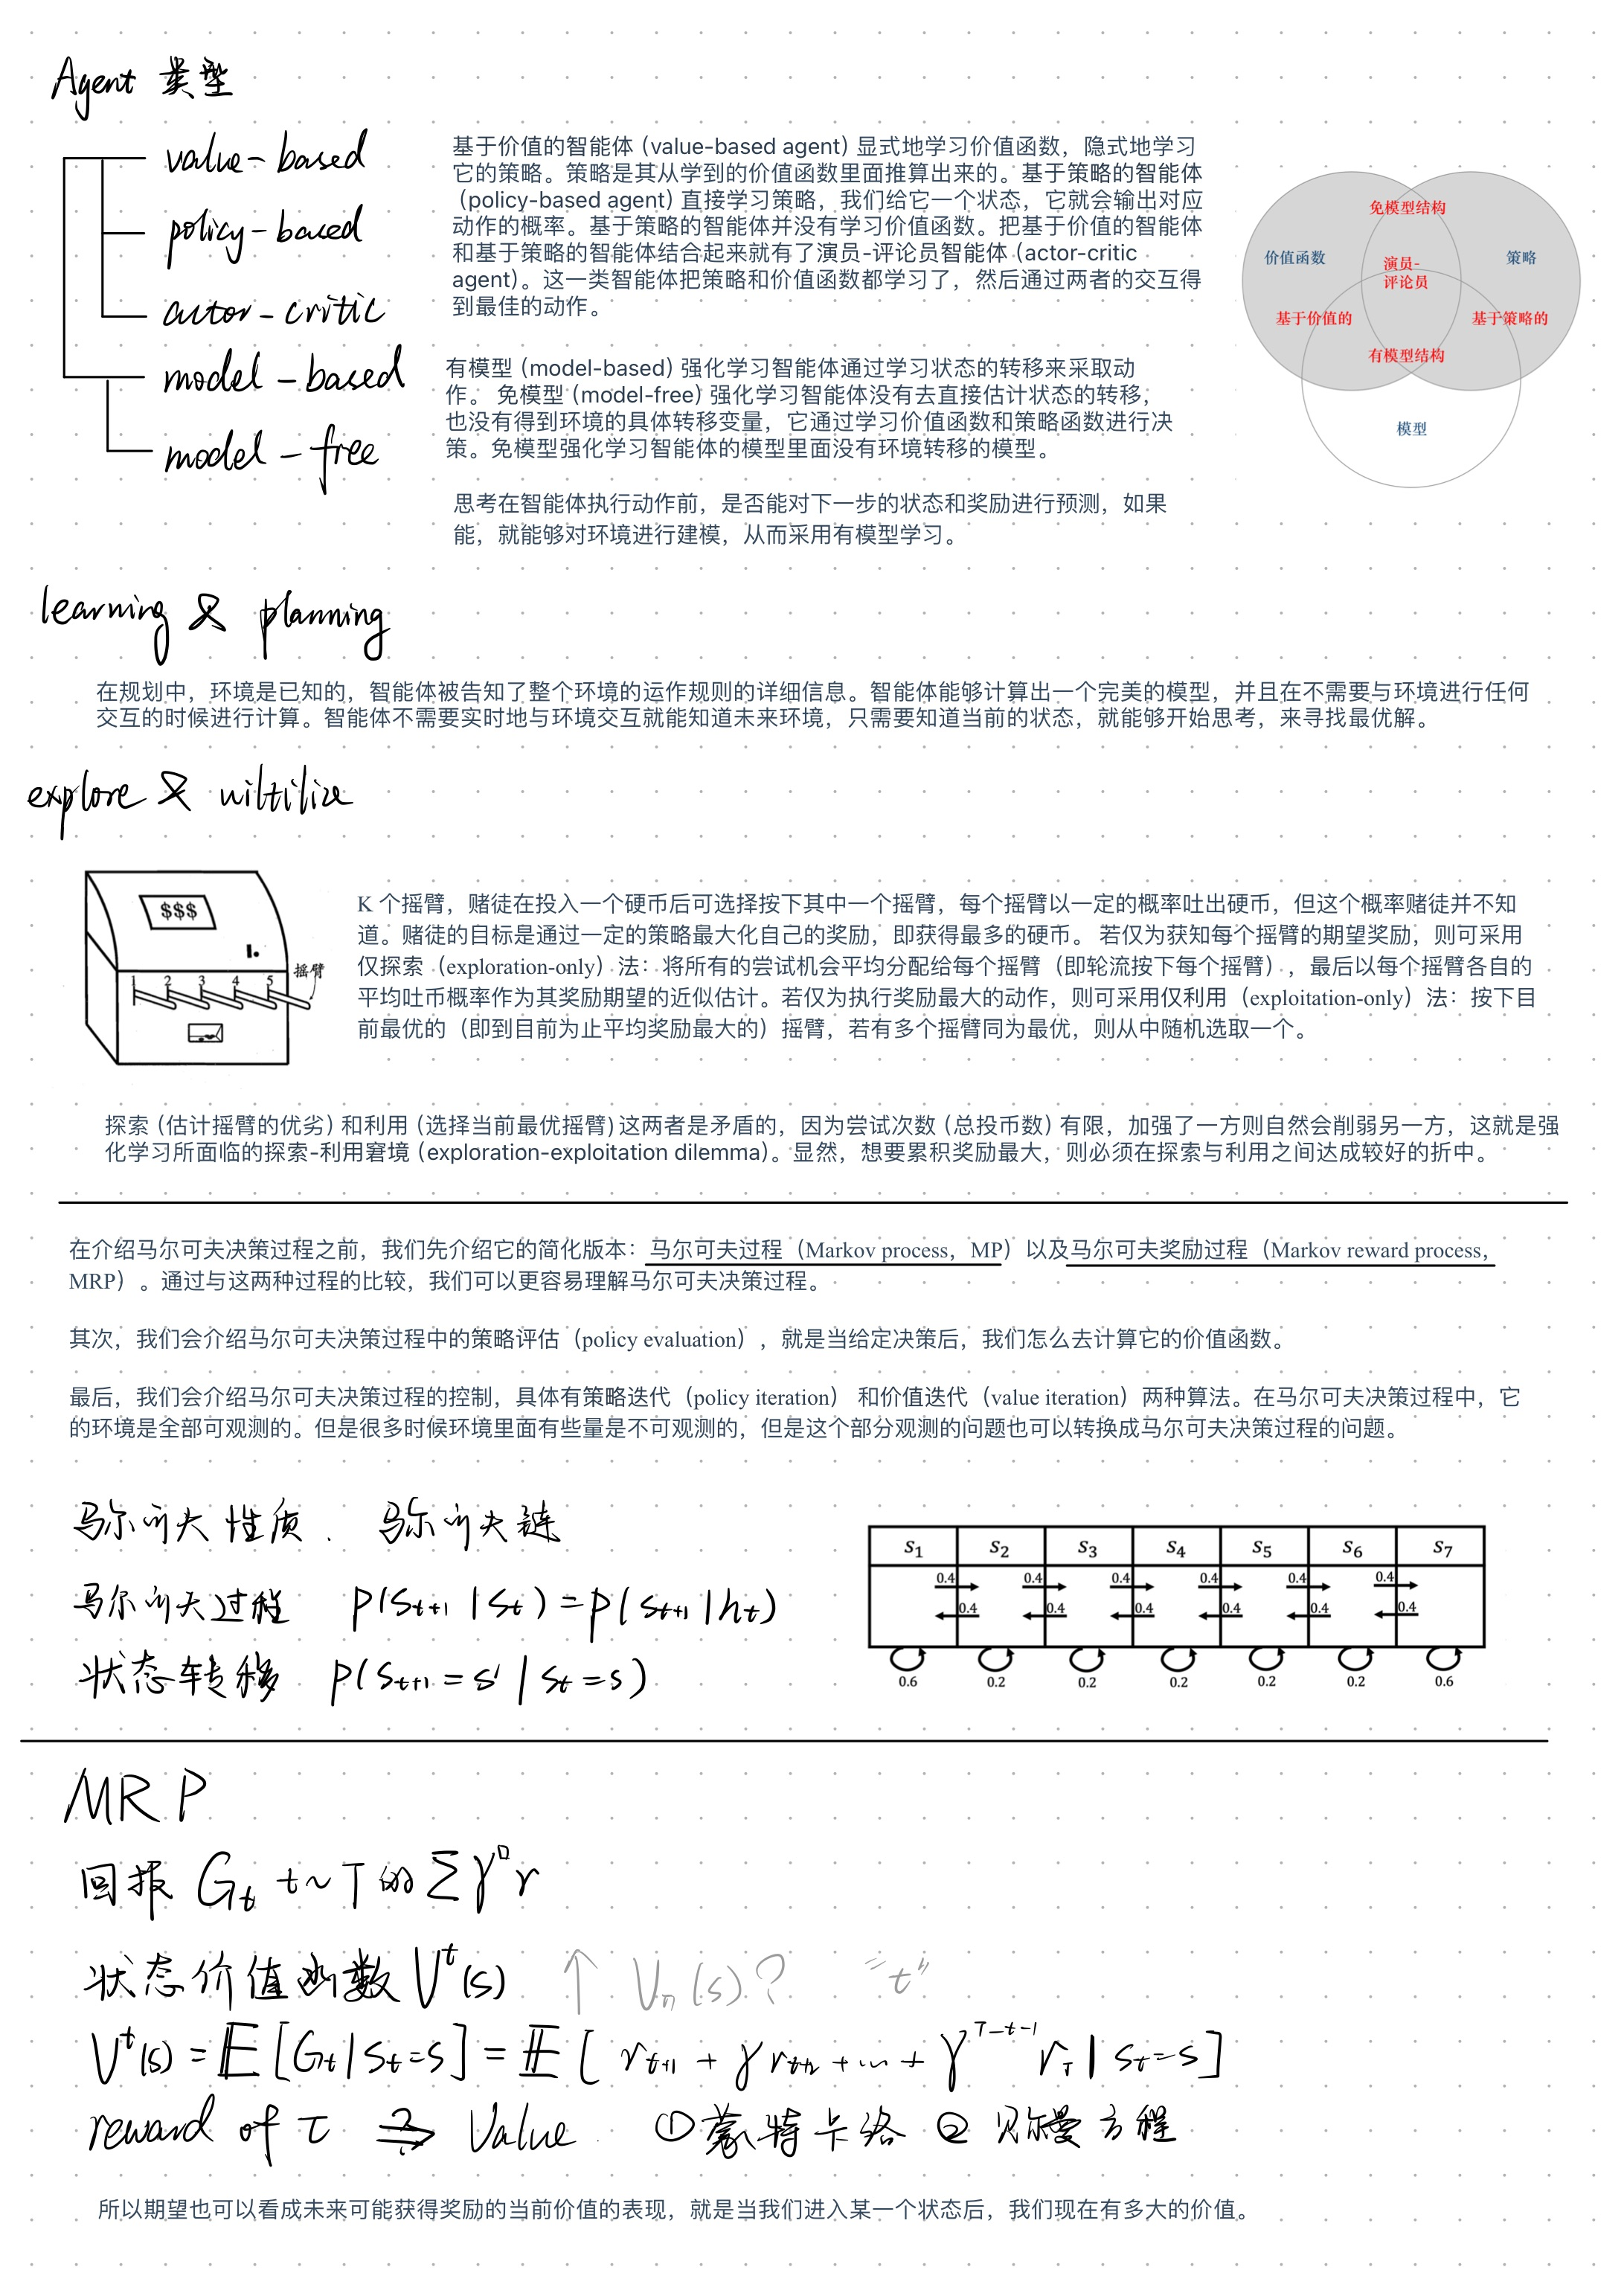 Agent 类型
value-based
policy-based
actor-critic
model-based
model-free
基于价值的智能体 (value-based agent) 显式地学习价值函数，隐式地学习
它的策略。策略是其从学到的价值函数里面推算出来的。基于策略的智能体
(policy-based agent) 直接学习策略，我们给它一个状态，它就会输出对应
动作的概率。基于策略的智能体并没有学习价值函数。把基于价值的智能体
和基于策略的智能体结合起来就有了演员-评论员智能体 (actor-critic
agent)。这一类智能体把策略和价值函数都学习了，然后通过两者的交互得
到最佳的动作。
有模型 (model-based) 强化学习智能体通过学习状态的转移来采取动
作。 免模型 (model-free) 强化学习智能体没有去直接估计状态的转移，
也没有得到环境的具体转移变量，它通过学习价值函数和策略函数进行决
策。免模型强化学习智能体的模型里面没有环境转移的模型。
思考在智能体执行动作前，是否能对下一步的状态和奖励进行预测，如果
能，就能够对环境进行建模，从而采用有模型学习。
免模型结构
价值函数
策略
演员-
评论员
基于价值的
基于策略的
有模型结构
模型
learning & planning
在规划中，环境是已知的，智能体被告知了整个环境的运作规则的详细信息。智能体能够计算出一个完美的模型，并且在不需要与环境进行任何
交互的时候进行计算。智能体不需要实时地与环境交互就能知道未来环境，只需要知道当前的状态，就能够开始思考，来寻找最优解。
explore & uiltilize
$$$
1 2 3 4 5
摇臂
K 个摇臂，赌徒在投入一个硬币后可选择按下其中一个摇臂，每个摇臂以一定的概率吐出硬币，但这个概率赌徒并不知
道。赌徒的目标是通过一定的策略最大化自己的奖励，即获得最多的硬币。 若仅为获知每个摇臂的期望奖励，则可采用
仅探索（exploration-only）法：将所有的尝试机会平均分配给每个摇臂（即轮流按下每个摇臂），最后以每个摇臂各自的
平均吐币概率作为其奖励期望的近似估计。若仅为执行奖励最大的动作，则可采用仅利用（exploitation-only）法：按下目
前最优的（即到目前为止平均奖励最大的）摇臂，若有多个摇臂同为最优，则从中随机选取一个。
探索 (估计摇臂的优劣) 和利用 (选择当前最优摇臂) 这两者是矛盾的，因为尝试次数 (总投币数) 有限，加强了一方则自然会削弱另一方，这就是强
化学习所面临的探索-利用窘境 (exploration-exploitation dilemma)。显然，想要累积奖励最大，则必须在探索与利用之间达成较好的折中。
在介绍马尔可夫决策过程之前，我们先介绍它的简化版本：马尔可夫过程（Markov process，MP）以及马尔可夫奖励过程（Markov reward process，
MRP）。通过与这两种过程的比较，我们可以更容易理解马尔可夫决策过程。
其次，我们会介绍马尔可夫决策过程中的策略评估（policy evaluation），就是当给定决策后，我们怎么去计算它的价值函数。
最后，我们会介绍马尔可夫决策过程的控制，具体有策略迭代（policy iteration） 和价值迭代（value iteration）两种算法。在马尔可夫决策过程中，它
的环境是全部可观测的。但是很多时候环境里面有些量是不可观测的，但是这个部分观测的问题也可以转换成马尔可夫决策过程的问题。
马尔可夫性质. 马尔可夫链
马尔可夫过程 p(s_{t+1} | s_t) = p(s_{t+1} | h_t)
状态转移 p(s_{t+1} = s' | s_t = s)
s₁ s₂ s₃ s₄ s₅ s₆ s₇
0.4 0.4 0.4 0.4 0.4 0.4
0.4 0.4 0.4 0.4 0.4 0.4
0.6 0.2 0.2 0.2 0.2 0.2 0.6
MRP
回报 G_t t~T的 Σγ^□ r
状态价值函数 V^t(s) ↑ V_π(s)? "t"
V^t(s) = E[G_t | s_t = s] = E[r_{t+1} + γr_{t+2} + ... + γ^{T-t-1} r_T | s_t = s]
reward of τ ⇒ Value ①蒙特卡洛 ②贝尔曼方程
所以期望也可以看成未来可能获得奖励的当前价值的表现，就是当我们进入某一个状态后，我们现在有多大的价值。